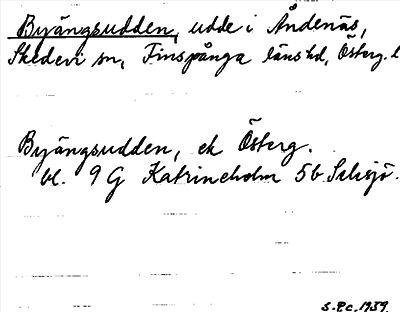 Byängsudden, udde i Åndenäs,
Skedevi sn, Finspånga länshd, Österg. l
Byängsudden, ek Österg.
bl. 9 G Katrineholm 5b Silsjö.
S.P.c. 1939.